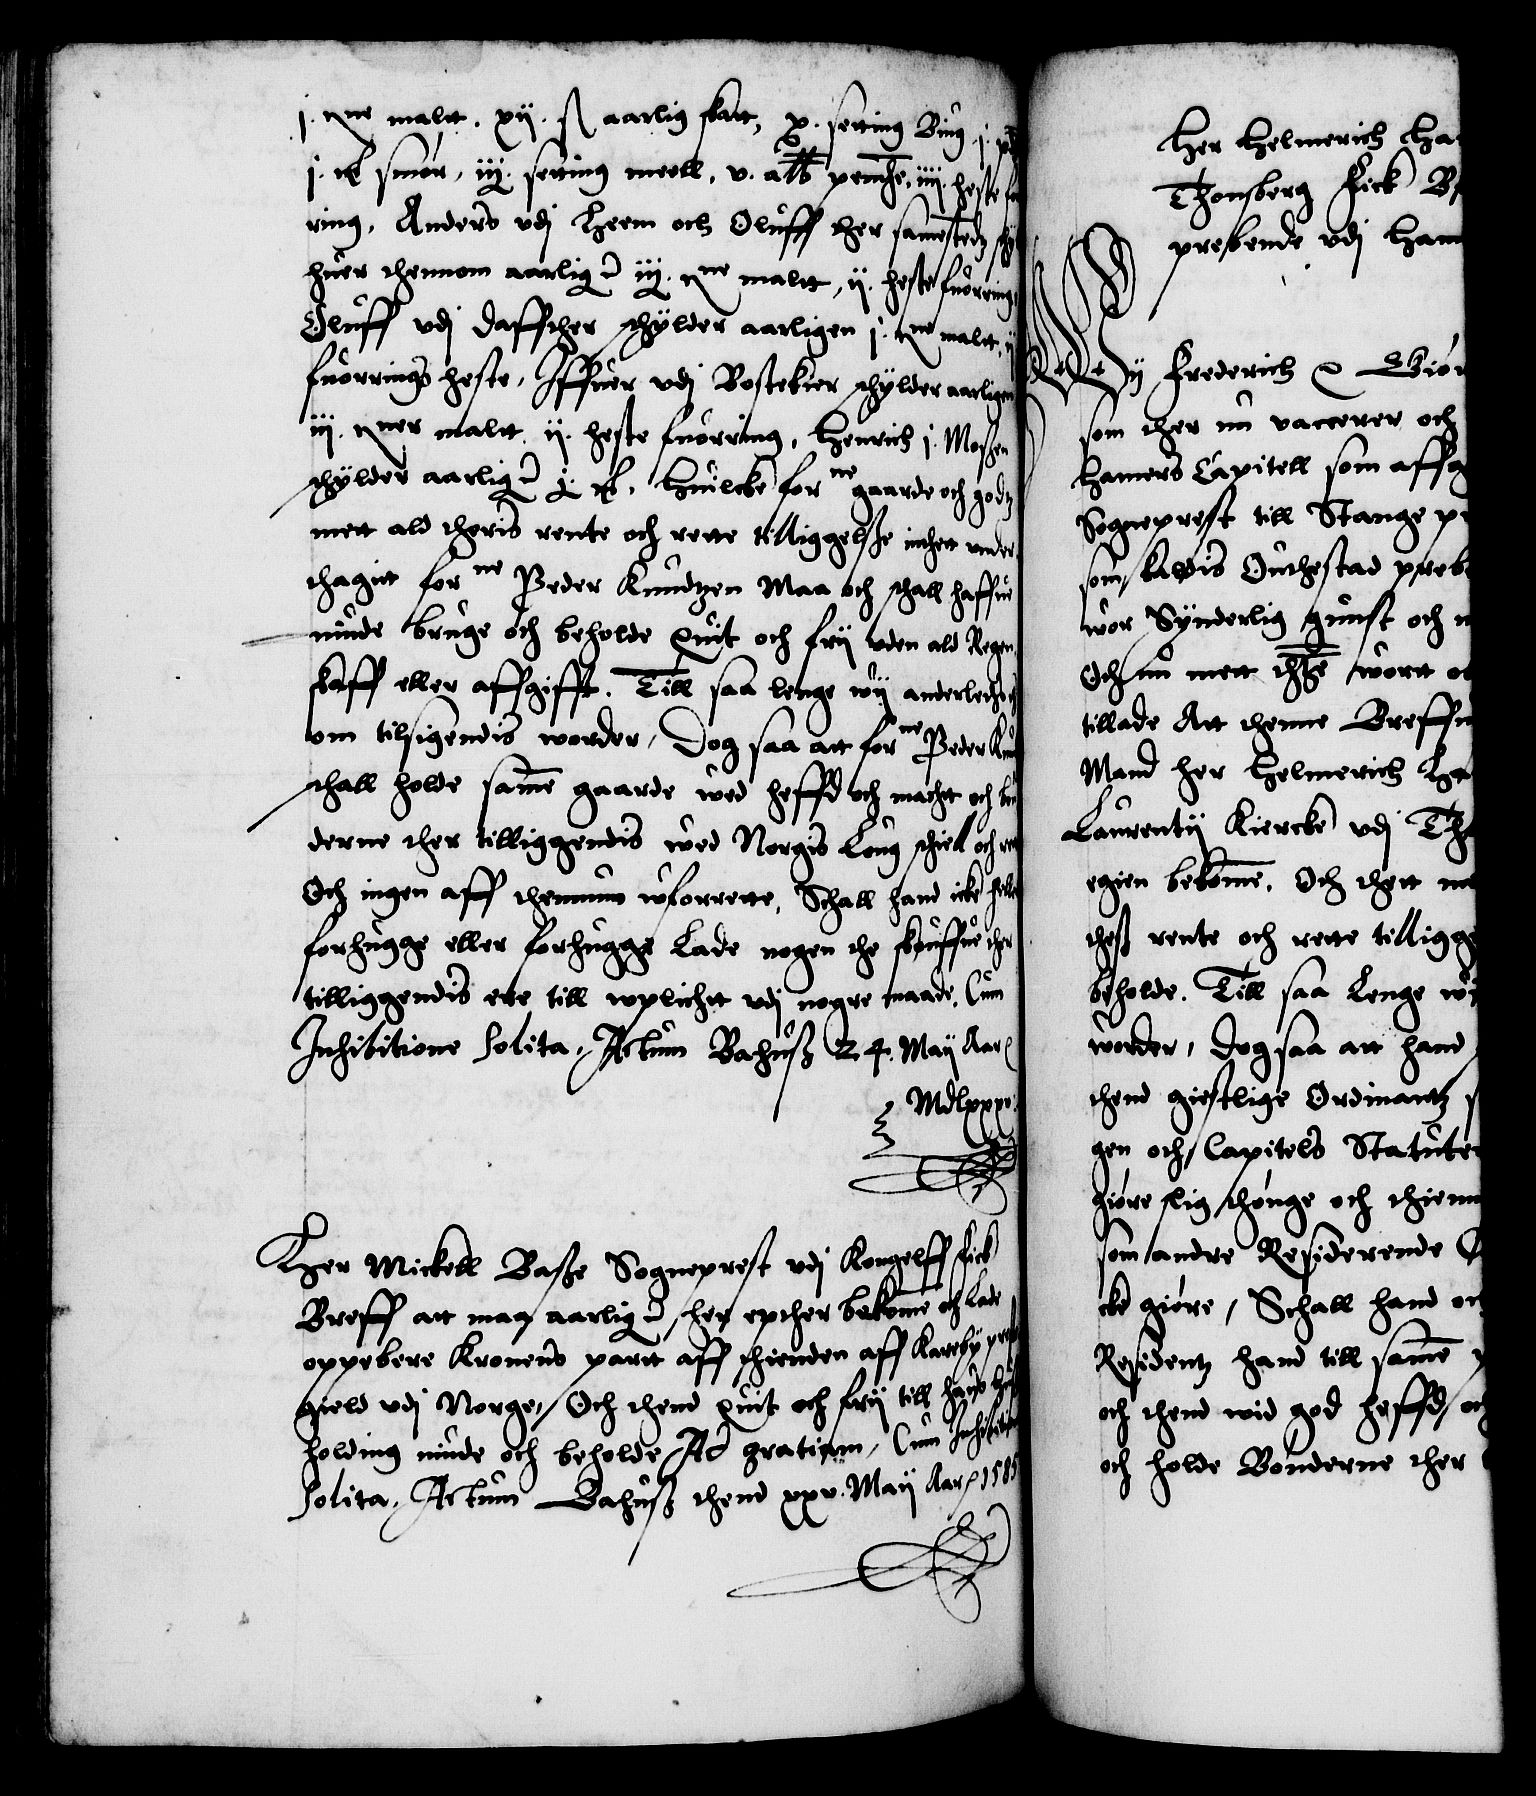 j. t​ne maltt. xij. ß aarlig skatt, x. setting Biug j.
j. t​ smør, iij. setting meell, v. alb penge, iiij. heste fo
ring, Anders vdj Heem och Oluff ther samestedz
huer thennom aarlig iij. t​ne maltt, ij. heste fuorring,
Oluff vdj Daffther schylder aarligen j. t​ne maltt, ij
fuorrings heste, Iffuer vdj Bostekier schylder aarligen
iij. t​ner maltt. ij. heste fuorring, Henrich j. Moshen
schylder aarlig huilcke forne gaarde och godtz
mett ald theris rente och rette tilliggelsze inthet vnder
thagit forne Peder Knudtzen Maa och schall haffue
niude bruge och beholde quit och frij uden ald Regen,
skaff eller affgifft. Till saa lenge wij anderledh
om tilsigendis worder, Dog saa att forne Peder Knu
schall holde samme gaarde wed heffd och macht och bøn
derne ther tilliggendis wed Norgis Loug schiell och rett
Och ingen aff thennum wforrette, Schall hand icke heller
forhugge eller forhugge Lade nogen the skouffue ther
tilliggendis ere till wplicht vdj nogre maade, Cum
Inhibitione solita, Actum Bahusz 24. Maij Aar
Mdlxxxv.
Her Mickell Basze Sogneprest vdj Kongelff fick
Breff att maa aarlig her epther bekomme och Lade
oppebere Kronens partt aff thienden aff Kareby prest
gield vdj Norge, Och thend quit och frij till hans huss
holding niude och beholde Ad gratiam, Cum Inhibitione
solita, Actum Bahusz thend xxv. Maij Aar 1585
Her Helmerich Ha
Thonsberg fick B
prebende vdj Ham
Wij Frederich Giør
som ther nu vaccerer och
Hamers Capitell som affg
Sogneprest till Stange pr
som kaldis Outhestad preb
wor Synderlig gunst och n
Och nu mett thette wortt ob
tillade Att thenne Breffu
Mand her Helmerich Ha
Laurentij Kiercke vdj Th
egien bekomme, Och thett me
thesz rente och rette tilligge
beholde. Till saa Lenge wi
worder, Dog saa att hand
thend giestlige Ordinantz
gen och Capitels Statute
giøre slig thønge och thienn
som andre Residerende C
cke giøre, Schall hand och
Residentz hand till samme
och thend wid god heffd och
och holde Bønderne ther